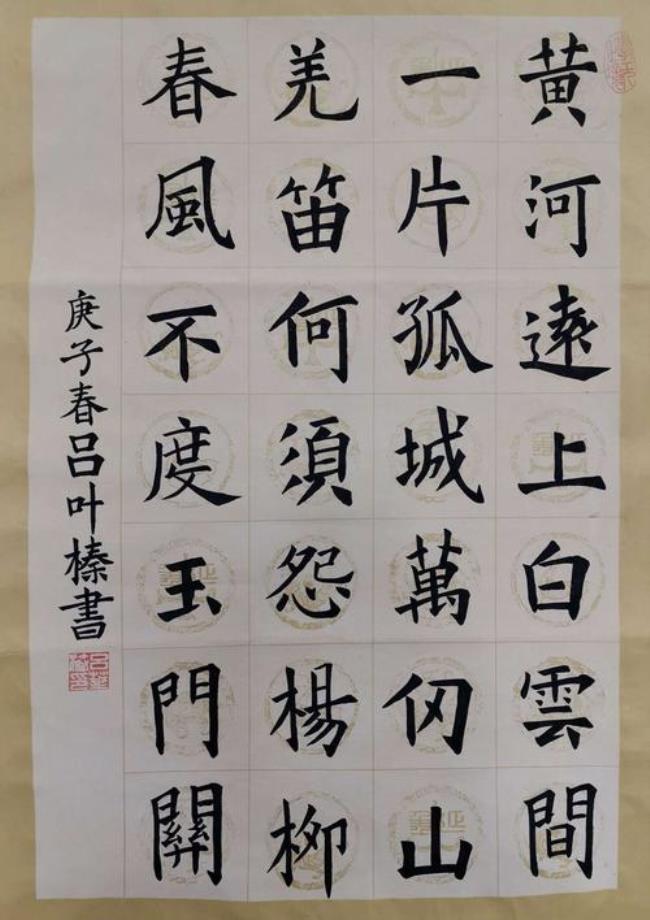 黄河遠上白雲間
一片孤城萬仞山
羌笛何須怨楊柳
春風不度玉門關
庚子春吕叶榛書